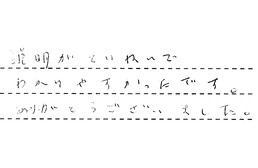 説明がていねいで
わかりやすかったです。
ありがとうございました。